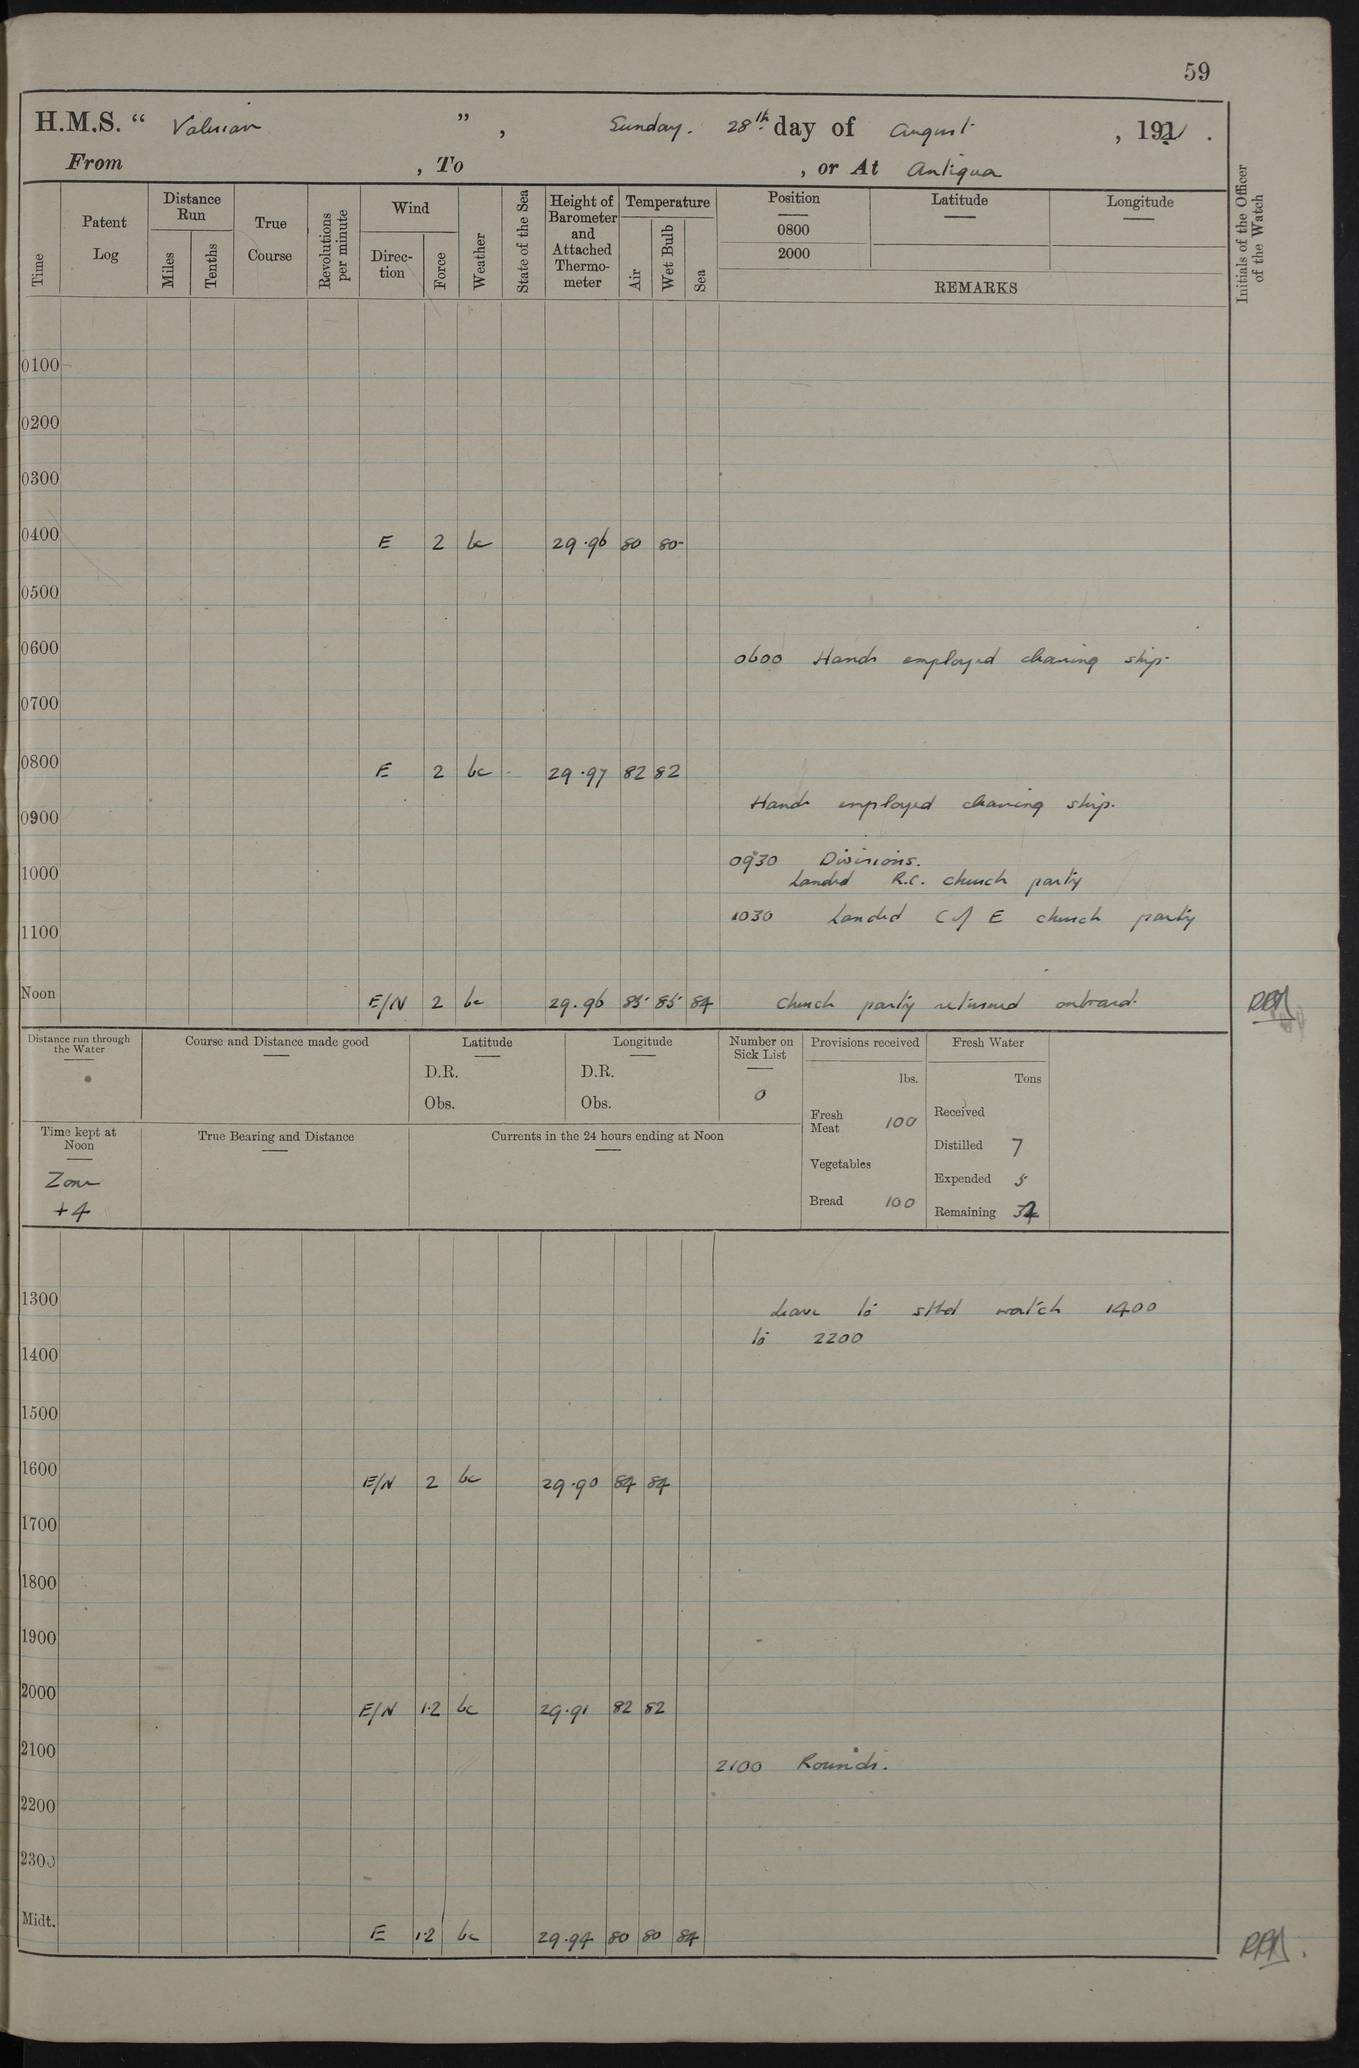 59
H.M.S. “ Valerian ” , Sunday. 28th. day of August , 192 .
From , To , or At Antigua
Time
Patent Log
Distance Run
Miles
Tenths
True Course
Revolutions per minute
Wind
Direction
Force
Weather
State of the Sea
Height of Barometer and Attached Thermometer
Temperature
Air
Wet Bulb
Sea
Position
0800
2000
Latitude
Longitude
REMARKS
Initials of the Officer of the Watch
0100
0200
0300
0400 E 2 bc 29.96 80 80
0500
0600 0600 Hands employed cleaning ship.
0700
0800 E 2 bc 29.97 82 82
Hands employed cleaning ship.
0900
0930 Divisions.
1000 Landed R.C. church party
1030 Landed C of E church party
1100
Noon E/N 2 bc 29.96 85 85 84 Church party returned onboard.
Distance run through the Water
Course and Distance made good
Latitude
D.R.
Obs.
Longitude
D.R.
Obs.
Number on Sick List
0
Provisions received
lbs.
Fresh Meat 100
Vegetables
Bread 100
Fresh Water
Tons
Received
Distilled 7
Expended 5
Remaining
Time kept at Noon
Zone
+4
True Bearing and Distance
Currents in the 24 hours ending at Noon
1300 Leave to stbd watch 1400
to 2200
1400
1500
1600 E/N 2 bc 29.90 84 84
1700
1800
1900
2000 E/N 1.2 bc 29.91 82 82
2100 2100 Rounds.
2200
2300
Midt. E 1.2 bc 29.94 80 80 84